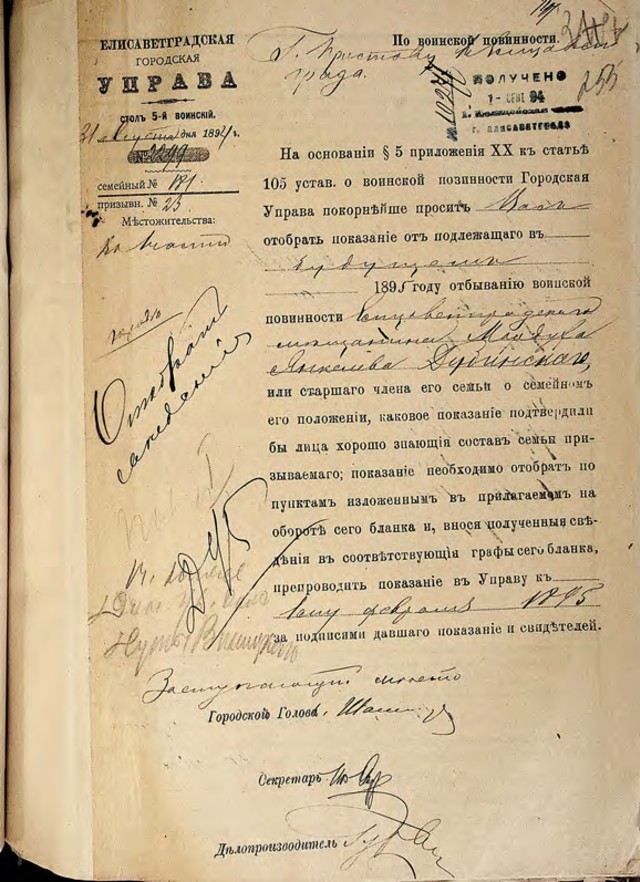 ЕЛИСАВЕТГРАДСКАЯ
ГОРОДСКАЯ
УПРАВА
СТОЛЪ 5-й ВОИНСКІЙ.
31 августа дня 1894 г.
№ 2299
семейный № 181.
призывн. № 23
Мѣстожительства:
По воинской повинности.
Г. Приставу
града.
ПОЛУЧЕНО
1 - СЕНТ 94
г. ЕЛИСАВЕТГРАДА
255
На основаніи § 5 приложенія XX къ статьѣ
105 устав. о воинской повинности Городская
Управа покорнѣйше проситъ Васъ
отобрать показаніе отъ подлежащаго въ
будущемъ
1895 году отбыванію воинской
повинности Елисаветградскаго
мѣщанина Мордуха
Янкелева Дубинскаго,
или старшаго члена его семьи о семейномъ
его положеніи, каковое показаніе подтвердили
бы лица хорошо знающія составъ семьи при-
зываемаго; показаніе необходимо отобрать по
пунктамъ изложеннымъ въ прилагаемомъ на
оборотѣ сего бланка и, внося полученныя свѣ-
дѣнія въ соотвѣтствующія графы сего бланка,
препроводить показаніе въ Управу къ
1му февраля 1895
за подписями давшаго показаніе и свидѣтелей.
Заступающій мѣсто
Городской Голова,
Секретарь
Дѣлопроизводитель